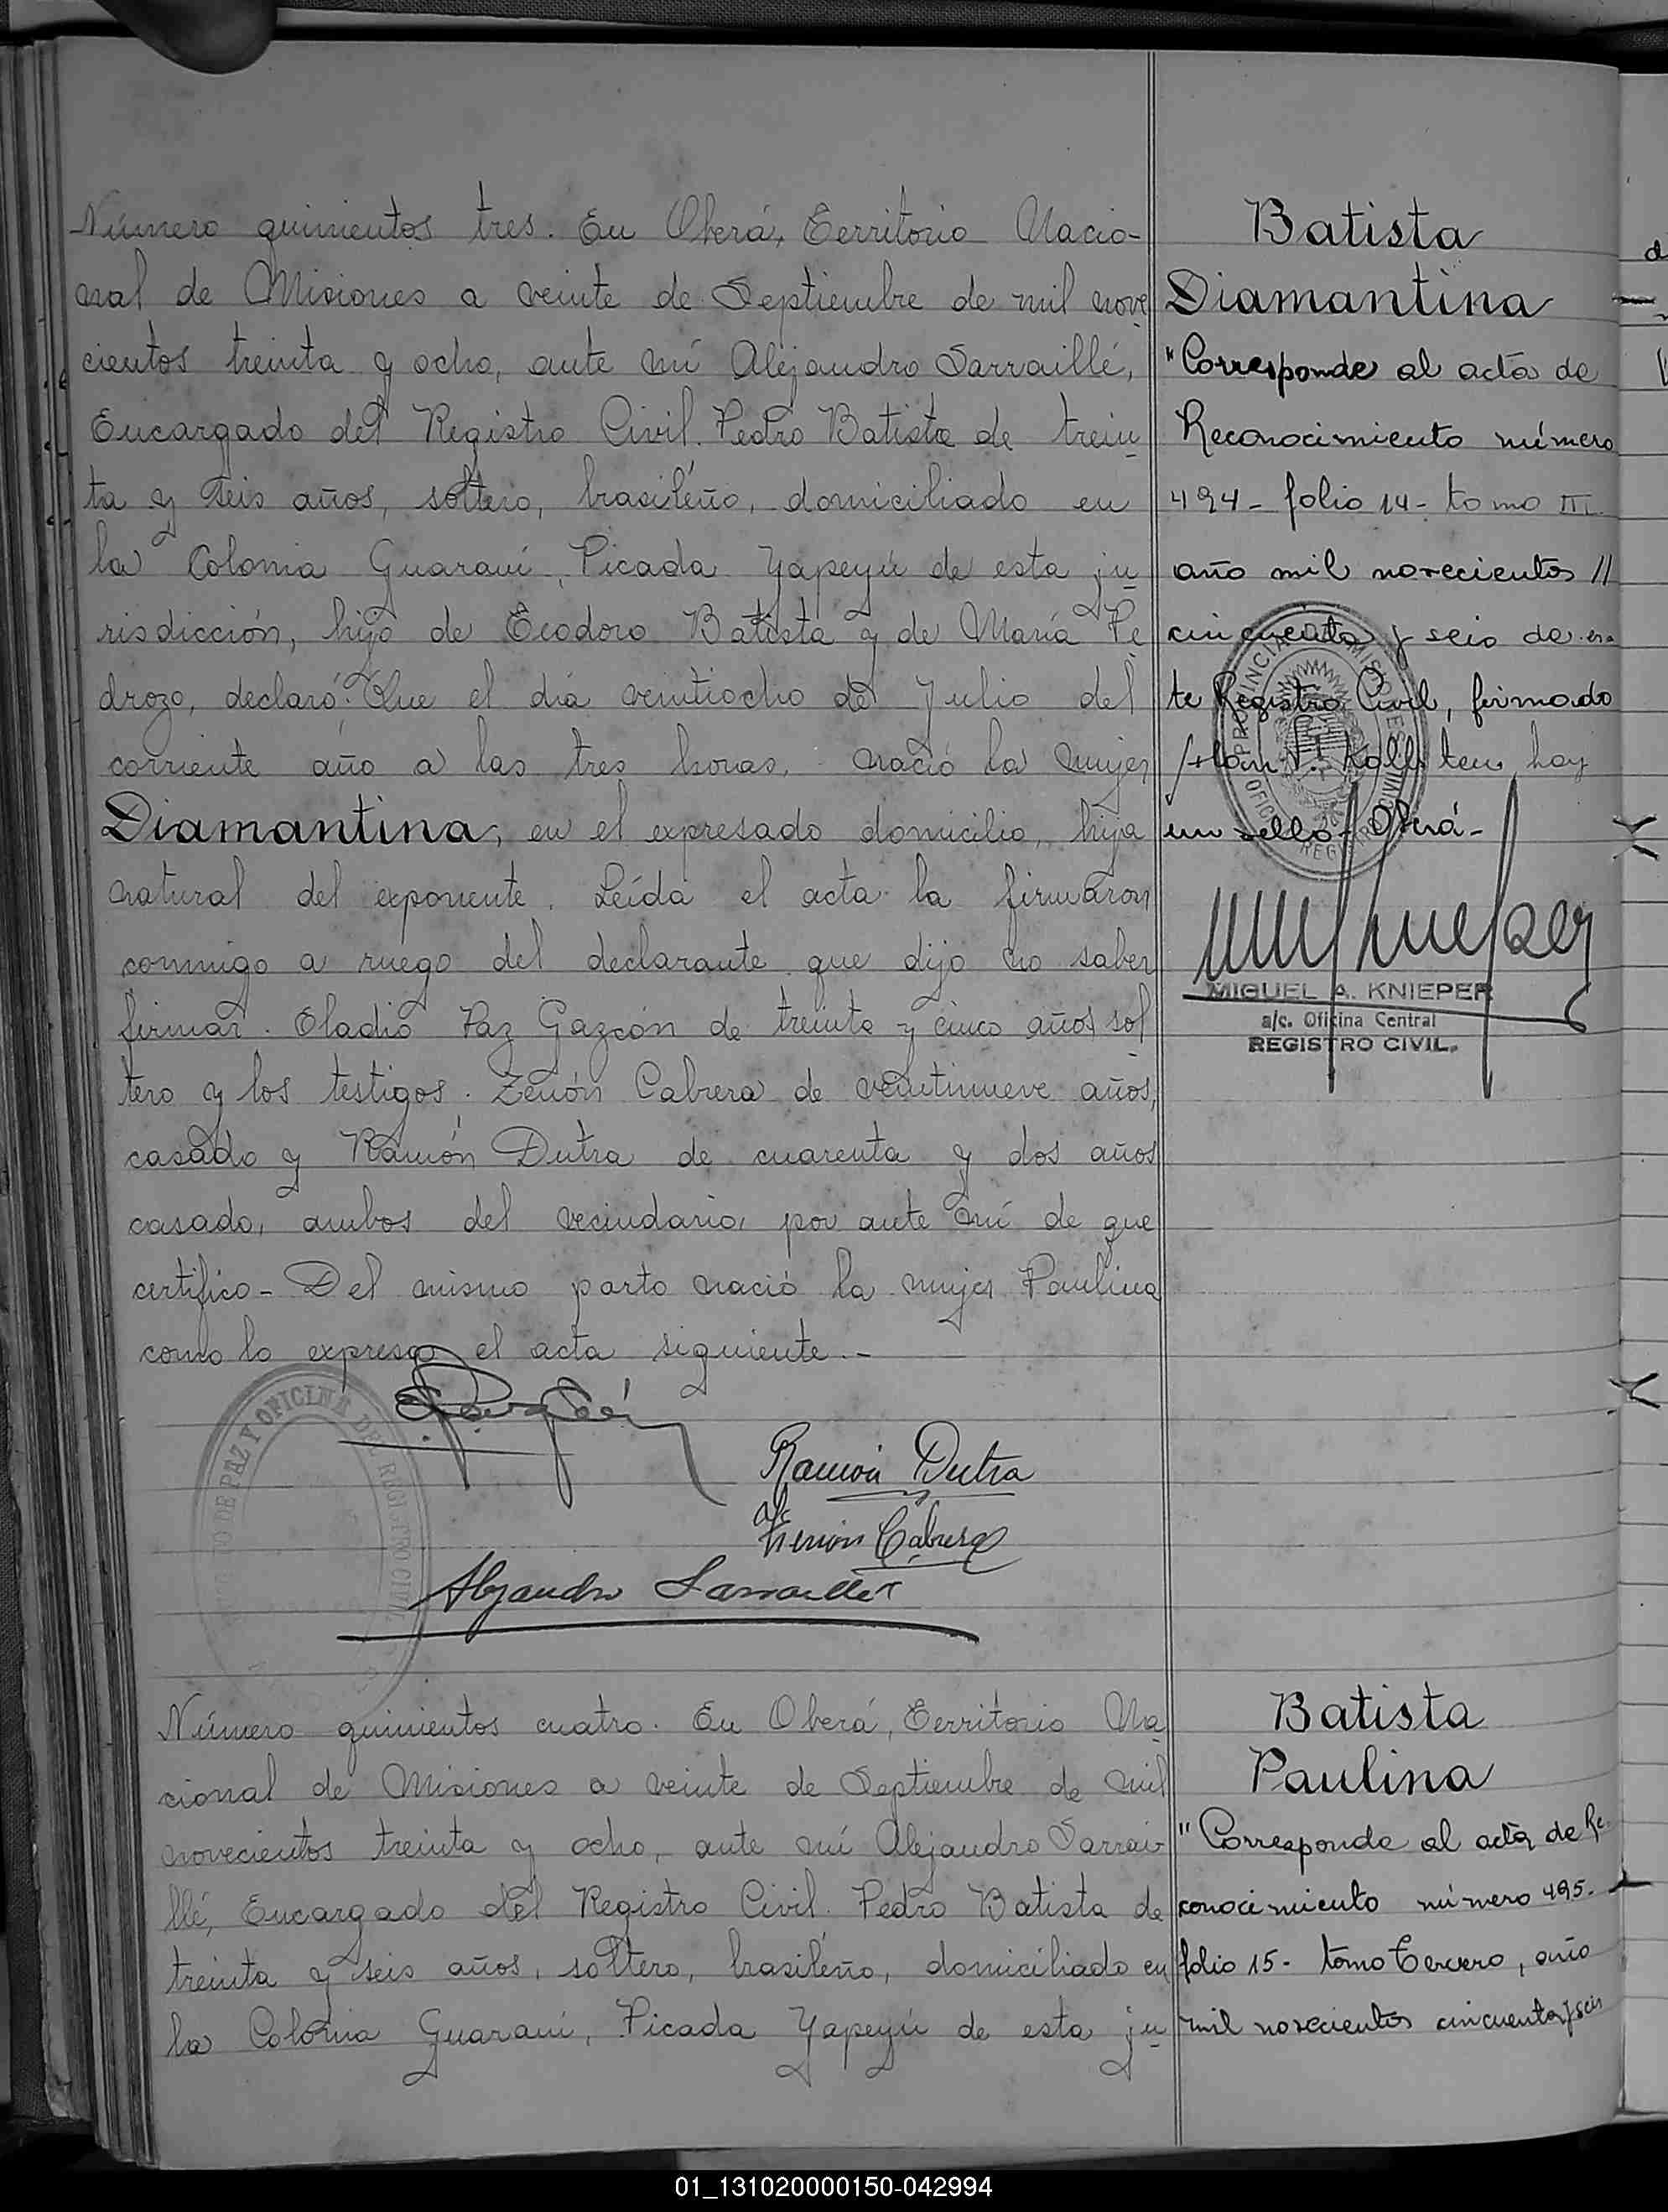 Número quinientos tres. En Oberá, Territorio Nacio-
nal de Misiones a veinte de Septiembre de mil nove
cientos treinta y ocho, ante mí Alejandro Sarraillé,
Encargado del Registro Civil. Pedro Batista de trein
ta y seis años, soltero, brasileño, domiciliado en
la Colonia Guaraní, Picada Yapeyú de esta ju
risdicción, hijo de Teodoro Batista y de María Pe
drozo, declaró: Que el día veintiocho de Julio del
corriente año a las tres horas, nació la mujer
Diamantina, en el expresado domicilio, hija
natural del exponente. Leída el acta la firmaron
conmigo a ruego del declarante que dijo no saber
firmar. Eladio Paz Gazcón de treinta y cinco años sol
tero y los testigos. Zenón Cabrera de veintinueve años,
casado y Ramón Dutra de cuarenta y dos años
casado, ambos del vecindario, por ante mí de que
certifico - Del mismo parto nació la mujer Paulina
como lo expresa el acta siguiente.-
Ramón Dutra
Zenón Cabrera
Alejandro Sarraillé
DE PAZ Y OFICINA DEL REGISTRO CIVIL
Batista
Diamantina
"Corresponde al acta de
Reconocimiento número
494 - folio 14 - tomo III.
año mil novecientos //
cincuenta y seis de es-
te Registro Civil, firmado
hay
un sello - Oberá -
PROVINCIA DE MISIONES
OFICINA REGISTRO CIVIL
MIGUEL A. KNIEPER
a/c. Oficina Central
REGISTRO CIVIL.
Número quinientos cuatro. En Oberá, Territorio Na
cional de Misiones a veinte de Septiembre de mil
novecientos treinta y ocho, ante mí Alejandro Sarrai
llé, Encargado del Registro Civil. Pedro Batista de
treinta y seis años, soltero, brasileño, domiciliado en
la Colonia Guaraní, Picada Yapeyú de esta ju
Batista
Paulina
"Corresponde al acta de Re-
conocimiento número 495.-
folio 15 - tomo tercero, año
mil novecientos cincuenta y seis
01_131020000150-042994